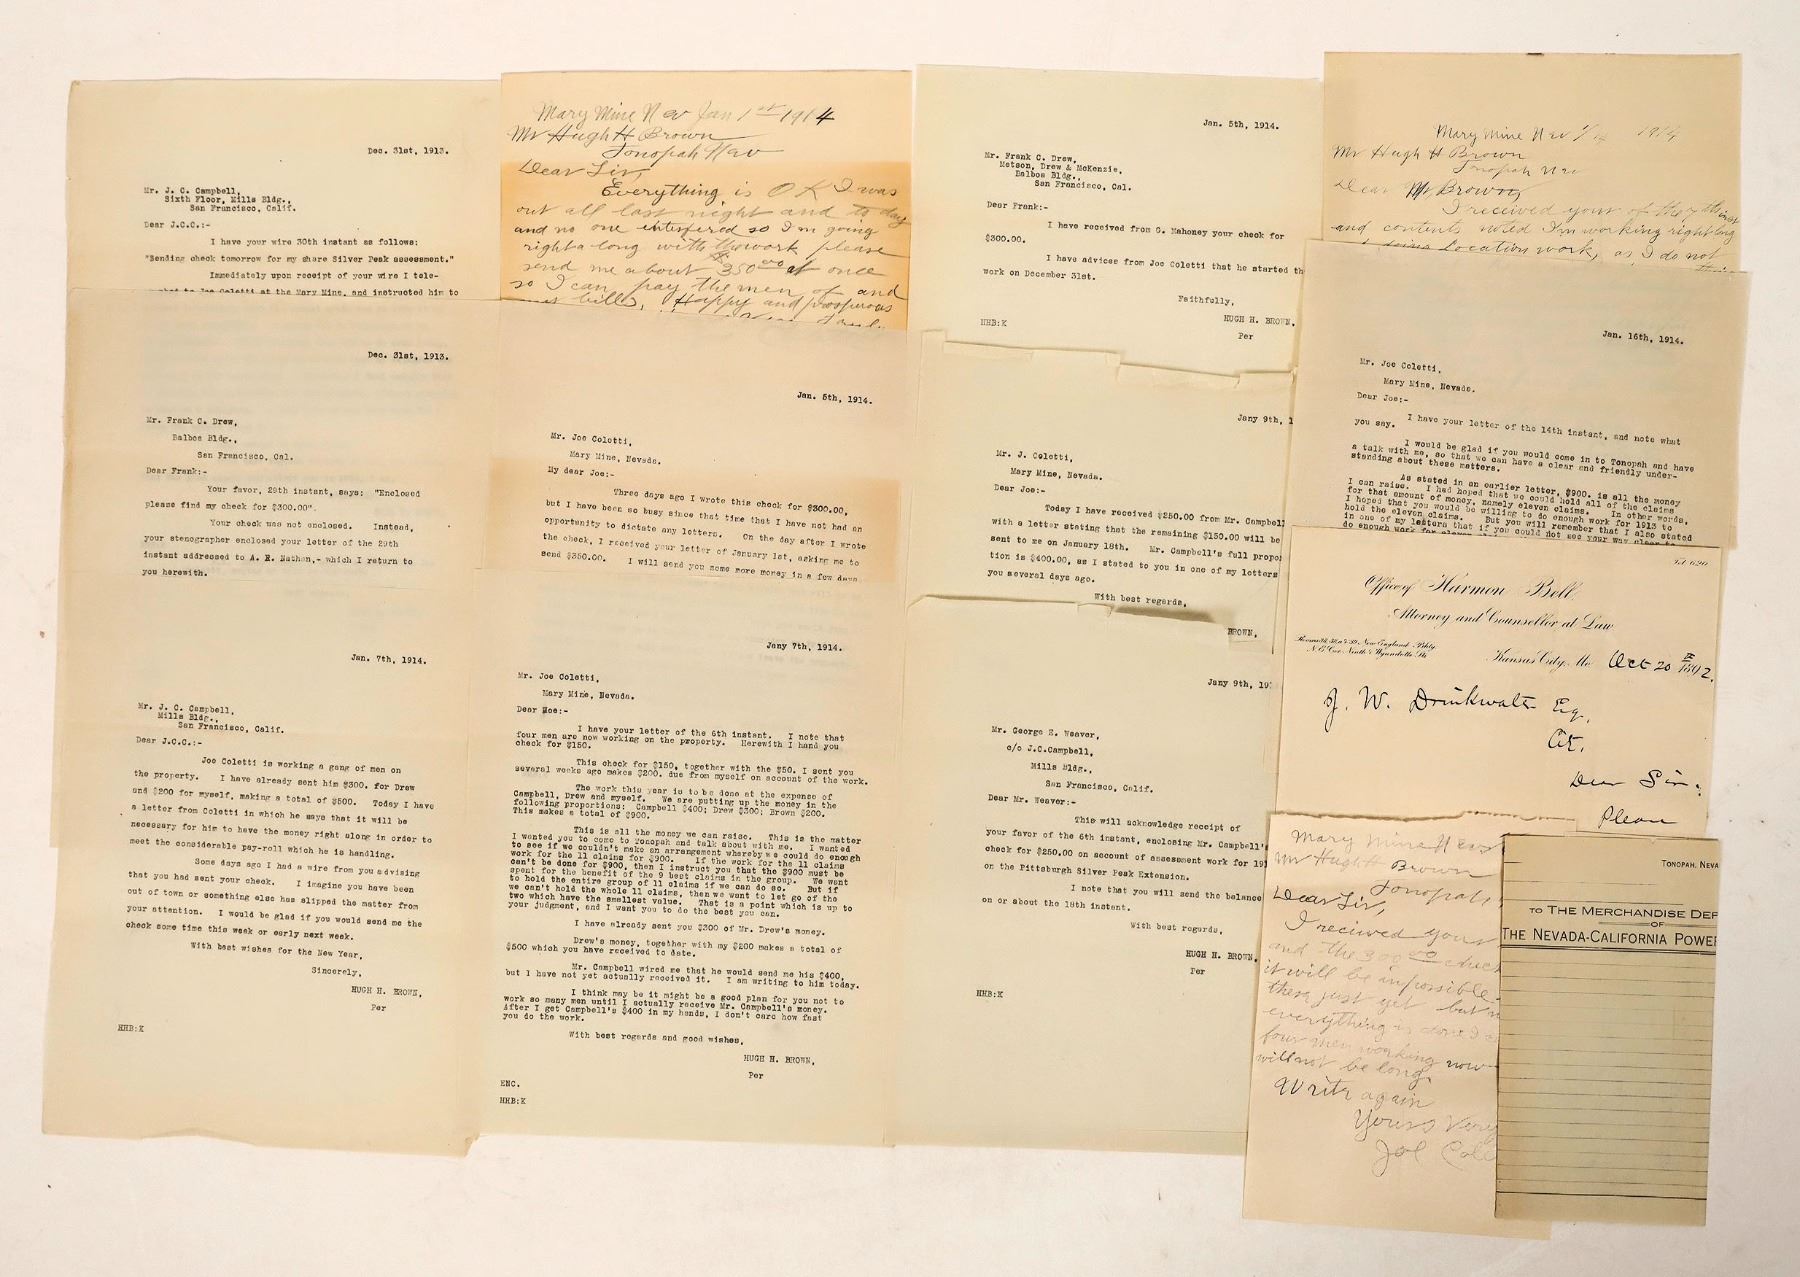 Dec. 31st, 1913.
Mr. J. C. Campbell,
Sixth Floor, Mills Bldg.,
San Francisco, Calif.
Dear J.C.C.:-
I have your wire 30th instant as follows:
"Sending check tomorrow for my share Silver Peak assessment."
Immediately upon receipt of your wire I tele-
to Joe Coletti at the Mary Mine, and instructed him to
Dec. 31st, 1913.
Mr. Frank C. Drew,
Balboa Bldg.,
San Francisco, Cal.
Dear Frank:-
Your favor, 29th instant, says: "Enclosed
please find my check for $300.00".
Your check was not enclosed. Instead,
your stenographer enclosed your letter of the 29th
instant addressed to A. R. Nathan,- which I return to
you herewith.
Jan. 7th, 1914.
Mr. J. C. Campbell,
Mills Bldg.,
San Francisco, Calif.
Dear J.C.C.:-
Joe Coletti is working a gang of men on
the property. I have already sent him $300. for Drew
and $200 for myself, making a total of $500. Today I have
a letter from Coletti in which he says that it will be
necessary for him to have the money right along in order to
meet the considerable pay-roll which he is handling.
Some days ago I had a wire from you advising
that you had sent your check. I imagine you have been
out of town or something else has slipped the matter from
your attention. I would be glad if you would send me the
check some time this week or early next week.
With best wishes for the New Year,
Sincerely,
HUGH H. BROWN,
Per
HHB:K
Mary Mine Nev Jan 1st 1914
Mr Hugh H Brown
Tonopah Nev
Dear Sir,
Everything is O K I was
out all last night and to day
and no one interfered so I'm going
right a long with the work please
send me about $350.00 at once
so I can pay the men of and
bills, Happy and prosperous
Jan. 5th, 1914.
Mr. Joe Coletti,
Mary Mine, Nevada.
My dear Joe:-
Three days ago I wrote this check for $300.00,
but I have been so busy since that time that I have not had an
opportunity to dictate any letters. On the day after I wrote
the check, I received your letter of January 1st, asking me to
send $350.00. I will send you some more money in a few days
Jany 7th, 1914.
Mr. Joe Coletti,
Mary Mine, Nevada.
Dear Moe:-
I have your letter of the 6th instant. I note that
four men are now working on the property. Herewith I hand you
check for $150.
This check for $150, together with the $50. I sent you
several weeks ago makes $200. due from myself on account of the work.
The work this year is to be done at the expense of
Campbell, Drew and myself. We are putting up the money in the
following proportions: Campbell $400; Drew $300; Brown $200.
This makes a total of $900.
This is all the money we can raise. This is the matter
I wanted you to come to Tonopah and talk about with me. I wanted
to see if we couldn't make an arrangement whereby we could do enough
work for the 11 claims for $900. If the work for the 11 claims
can't be done for $900, then I instruct you that the $900 must be
spent for the benefit of the 9 best claims in the group. We want
to hold the entire group of 11 claims if we can do so. But if
we can't hold the whole 11 claims, then we want to let go of the
two which have the smallest value. That is a point which is up to
your judgment, and I want you to do the best you can.
I have already sent you $300 of Mr. Drew's money.
Drew's money, together with my $200 makes a total of
$500 which you have received to date.
Mr. Campbell wired me that he would send me his $400,
but I have not yet actually received it. I am writing to him today.
I think may be it might be a good plan for you not to
work so many men until I actually receive Mr. Campbell's money.
After I get Campbell's $400 in my hands, I don't care how fast
you do the work.
With best regards and good wishes,
HUGH H. BROWN,
Per
ENC.
HHB:K
Jan. 5th, 1914.
Mr. Frank C. Drew,
Metson, Drew & McKenzie,
Balboa Bldg.,
San Francisco, Cal.
Dear Frank:-
I have received from G. Mahoney your check for
$300.00.
I have advices from Joe Coletti that he started th
work on December 31st.
Faithfully,
HUGH H. BROWN,
HHB:K
Per
Jany 9th, 1
Mr. J. Coletti,
Mary Mine, Nevada.
Dear Joe:-
Today I have received $250.00 from Mr. Campbell
with a letter stating that the remaining $150.00 will be
sent to me on January 18th. Mr. Campbell's full propo
tion is $400.00, as I stated to you in one of my letters
you several days ago.
With best regards,
BROWN,
Jany 9th, 19
Mr. George E. Weaver,
c/o J.C.Campbell,
Mills Bldg.,
San Francisco, Calif.
Dear Mr. Weaver:-
This will acknowledge receipt of
your favor of the 6th instant, enclosing Mr. Campbell's
check for $250.00 on account of assessment work for 191
on the Pittsburgh Silver Peak Extension.
I note that you will send the balance
on or about the 18th instant.
With best regards,
HUGH H. BROWN,
Per
HHB:K
Mary Mine Nev 1914
Mr Hugh H Brown
Tonopah Nev
Dear Mr Brown,
I received yours of the 7th inst
and contents noted I'm working right long
doing location work, as I do not
Jan. 16th, 1914.
Mr. Joe Coletti,
Mary Mine, Nevada.
Dear Joe:-
I have your letter of the 14th instant, and note what
you say.
I would be glad if you would come in to Tonopah and have
a talk with me, so that we can have a clear and friendly under-
standing about these matters.
As stated in an earlier letter, $900. is all the money
I can raise. I had hoped that we could hold all of the claims
for that amount of money, namely eleven claims. In other words,
I hoped that you would be willing to do enough work for 1913 to
hold the eleven claims. But you will remember that I also stated
in one of my letters that if you could not see your way clear to
do enough work for eleven
Tel. 620
Office of Harmon Bell
Attorney and Counsellor at Law
New England Bldg.
N.E. Cor. Ninth & Wyandotte Sts
Kansas City, Mo Oct 20 1892.
J. W. Drinkwater Esq,
Dear Sir:
Please
Mary Mine Nev
Mr Hugh H Brown
Tonopah,
Dear Sir,
I recieved yours
and the 300.00 check
it will be impossible
these just yet but
everything is done I
four men working now
will not be long.
Write again
Yours Very
Joe Cole
TONOPAH, NEVA
TO THE MERCHANDISE DEP
OF
THE NEVADA-CALIFORNIA POWER